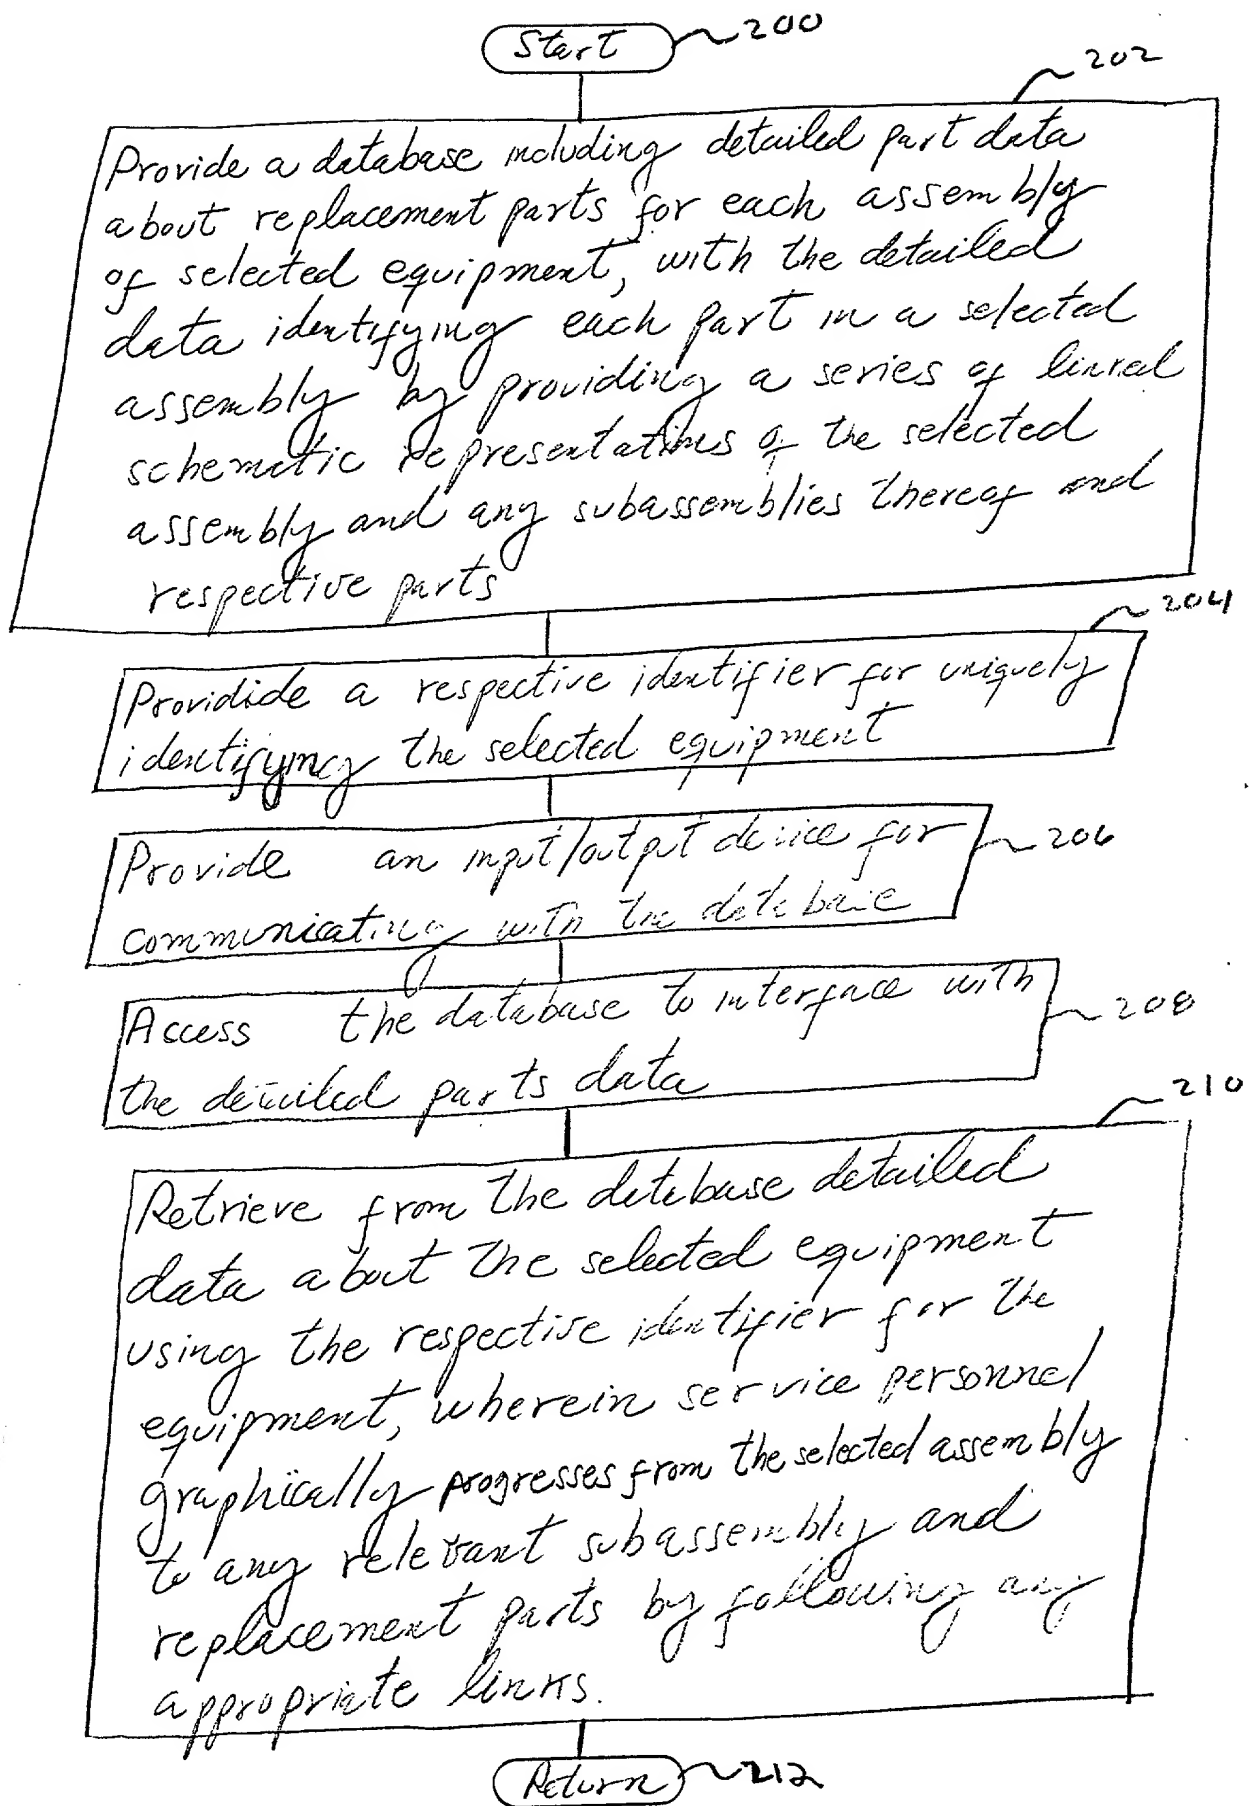 Start 200
202
Provide a database including detailed part data
about replacement parts for each assembly
of selected equipment, with the detailed
data identifying each part in a selected
assembly by providing a series of linked
schematic representations of the selected
assembly and any subassemblies thereof and
respective parts
204
Providide a respective identifier for uniquely
identifying the selected equipment
Provide an input/output device for
206
communicating with the database
Access the database to interface with
208
the detailed parts data
210
Retrieve from the database detailed
data about the selected equipment
using the respective identifier for the
equipment, wherein service personnel
graphically progresses from the selected assembly
to any relevant subassembly and
replacement parts by following any
appropriate links.
Return 212